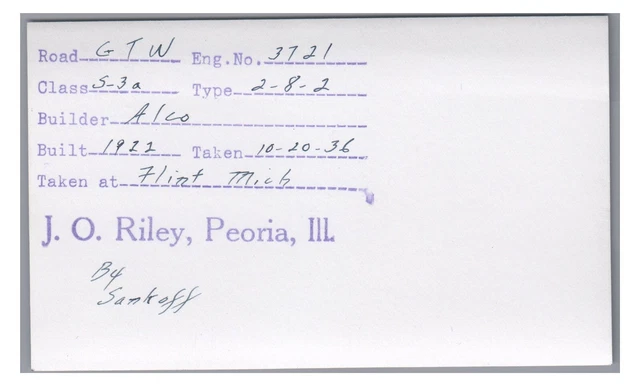 Road GTW Eng.No. 3721
Class S-3a Type 2-8-2
Builder Alco
Built 1922 Taken 10-20-36
Taken at Flint Mich
J. O. Riley, Peoria, Ill.
By
Sankoff